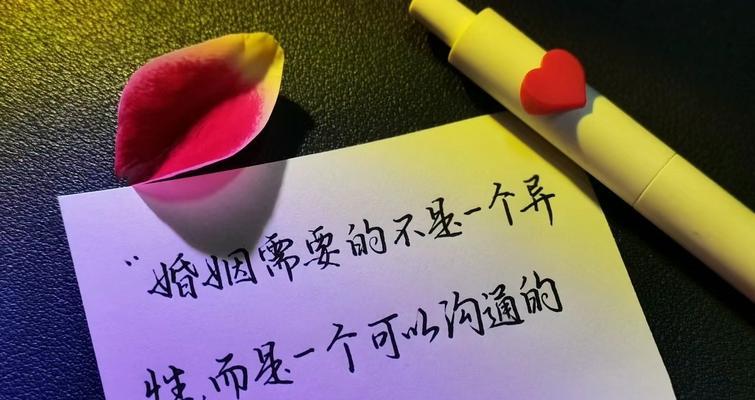 “婚姻需要的不是一个异
性,而是一个可以沟通的